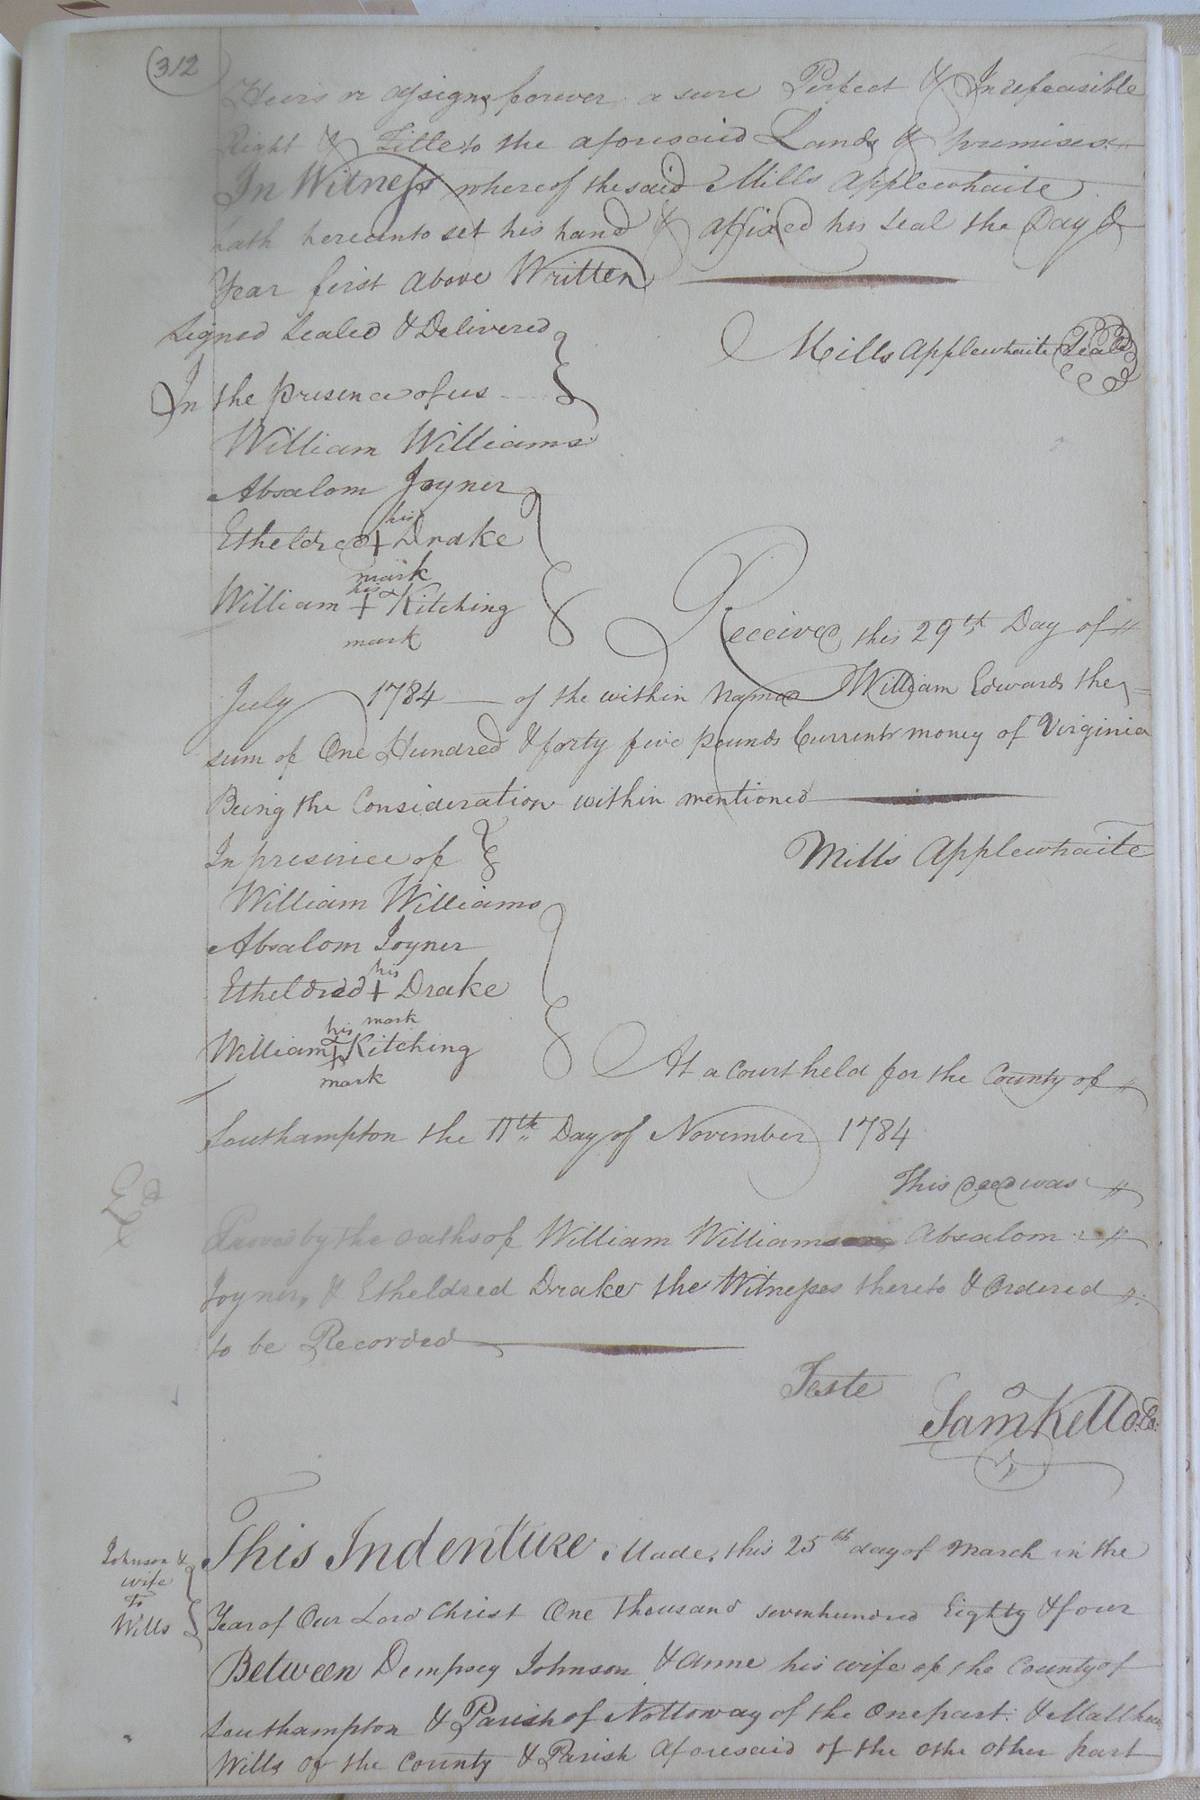 312
Heirs or assigns forever a sure Perfect & Indefeasible
Right & Title to the aforesaid Lands & premises
In Witness whereof the said Mills Applewhaite
hath hereunto set his hand & affixed his seal the Day &
Year first above Written
Signed Sealed & Delivered
In the presence of us
Mills Applewhaite Seal
William Williams
Absalom Joyner
his
Etheldred + Drake
mark
his
William + Kitching
mark
Received this 29th Day of
July 1784 of the within named William Edwards the
sum of One Hundred & forty five pounds Current money of Virginia
Being the Consideration within mentioned
Mills Applewhaite
In presence of
William Williams
Absalom Joyner
his
Etheldred + Drake
mark
his
William + Kitching
mark
At a Court held for the County of
Southampton the 11th Day of November 1784
This deed was
Ed
Proved by the oaths of William Williams Absalom
Joyner, & Etheldred Drake the Witnesses thereto & Ordered
to be Recorded
Teste
Sam Kello
Johnson &
wife
To
Wills
This Indenture Made, this 25th day of March in the
Year of Our Lord Christ One thousand sevenhundred Eighty & four
Between Dempsey Johnson & Anne his wife of the County of
Southampton & Parish of Nottoway of the One part & Matthew
Wills of the County & Parish Aforesaid of the othe other part